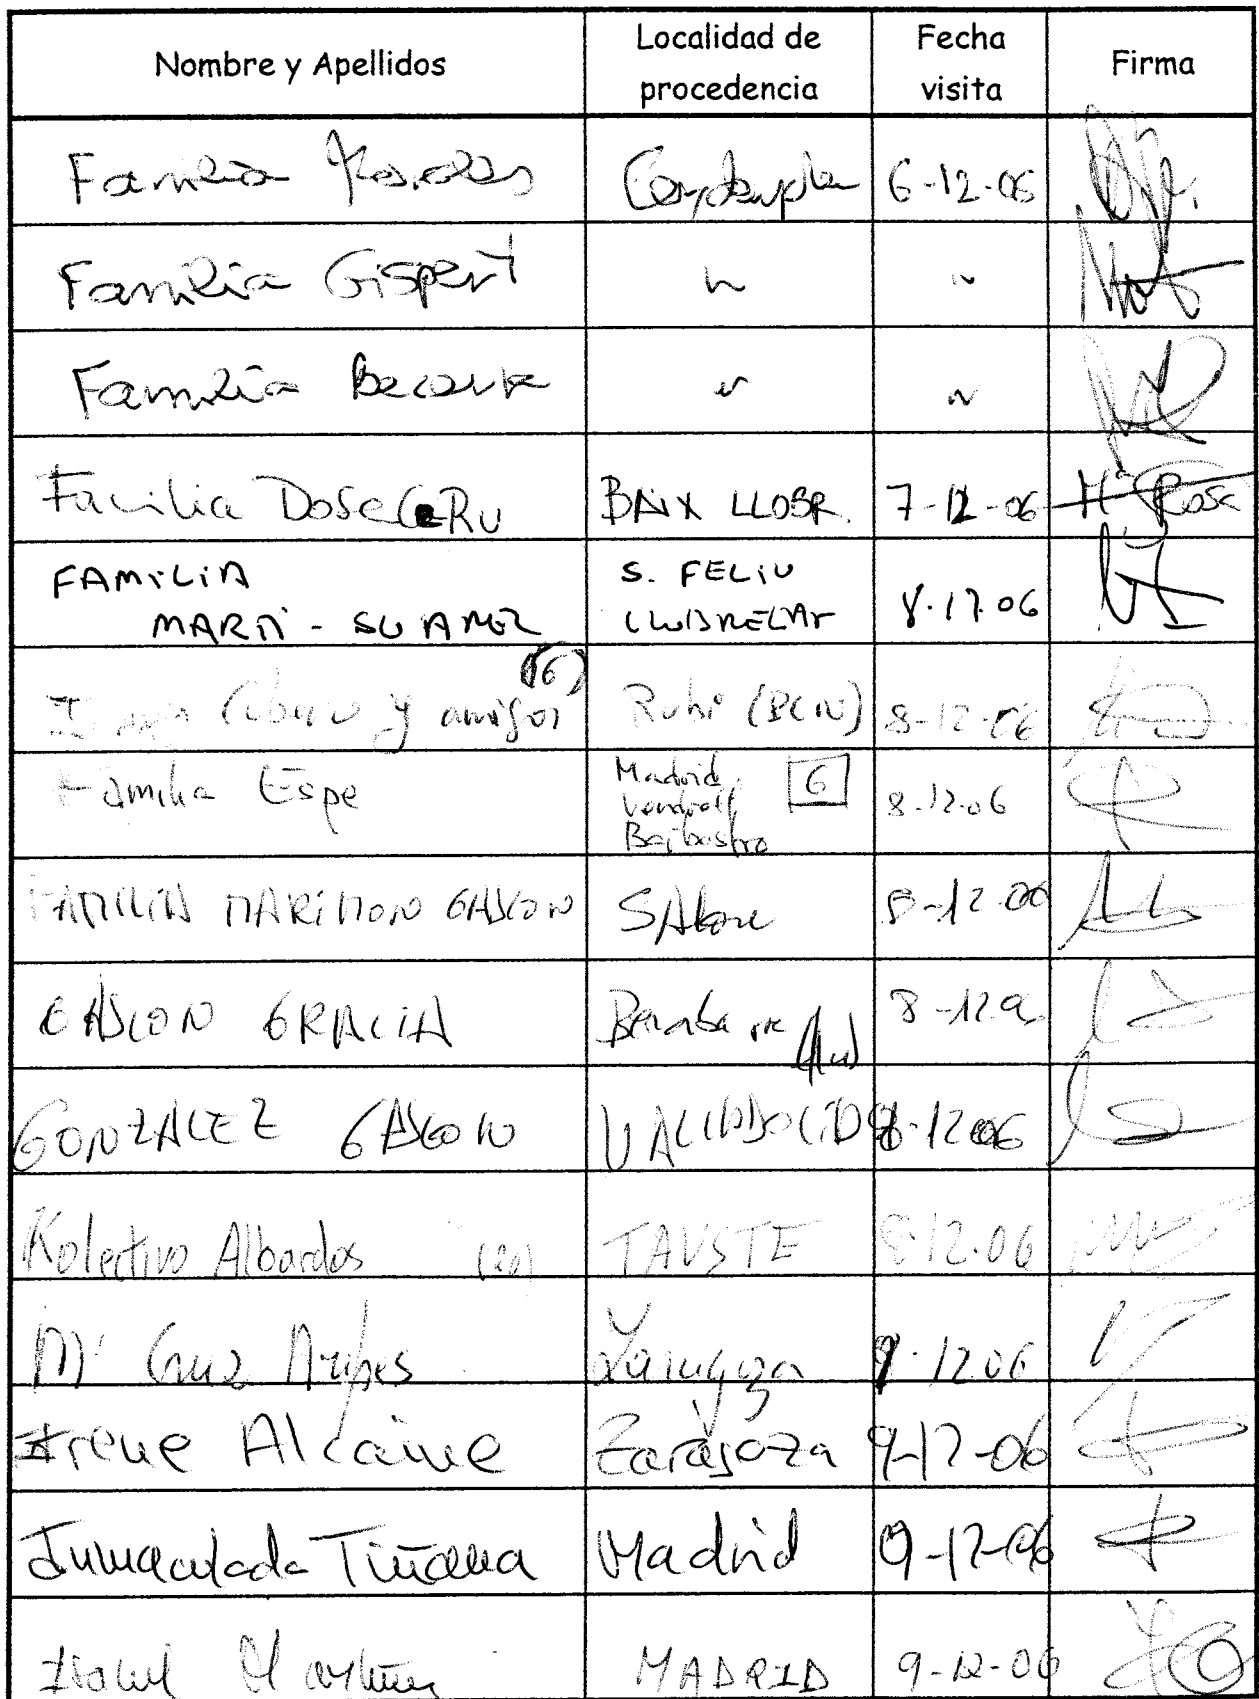 Nombre y Apellidos
Localidad de
procedencia
Fecha
visita
Firma
Familia
6-12-06
Familia Gispert
"
"
Familia
"
"
Familia
BAIX LLOBR.
7-12-06
Mª Rosa
FAMILIA
MARTI - SUAREZ
S. FELIU
LLOBREGAT
8.12.06
(6)
y amigos
Rubí (BCN)
8-12-06
Familia Espe
Madrid
Vendrell
Barbastro
6
8-12-06
FAMILIA MARIMON GASCON
SAlou
8-12-06
GASCON GRACIA
8-12-0
GONZALEZ GASCON
VALLADOLID
8-12-06
Kolectivo Albardos (20)
TAUSTE
8-12-06
Mª Cruz
Zaragoza
12 06
Irene Alcaine
Zaragoza
9-12-06
Inmaculada
Madrid
9-12-06
Isabel
MADRID
9-12-06